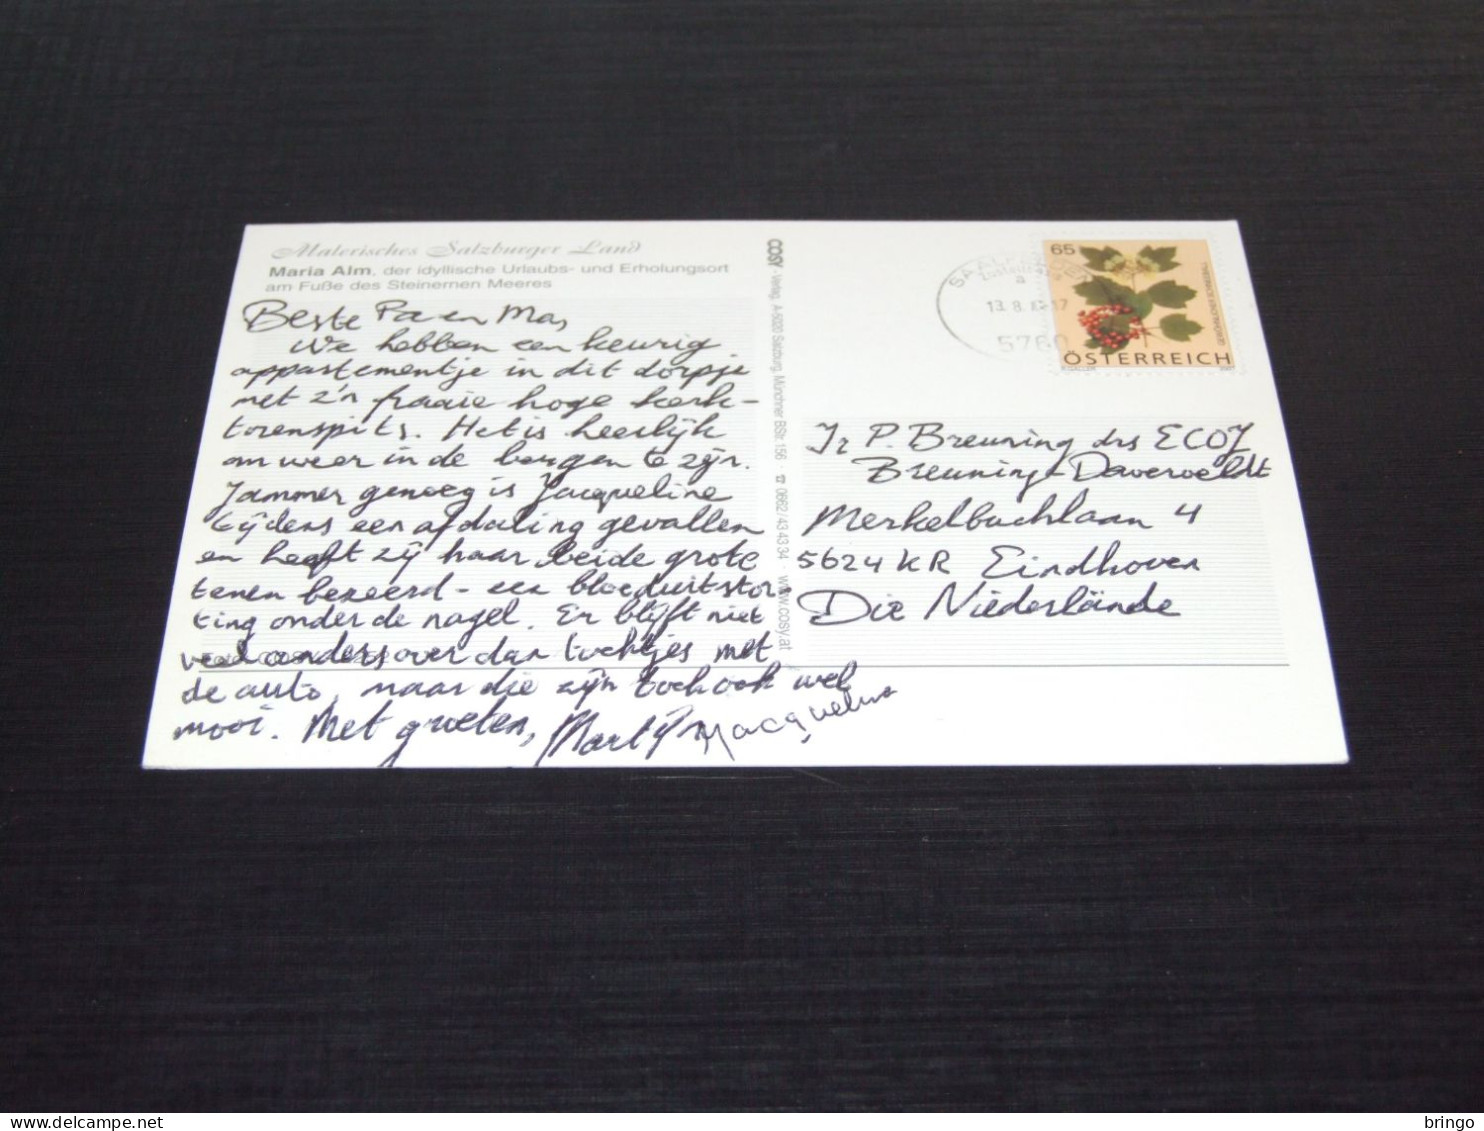 Malerisches Salzburger Land
Maria Alm, der idyllische Urlaubs- und Erholungsort
am Fuße des Steinernen Meeres
Beste Pa en Ma,
We hebben een keurig
appartementje in dit dorpje
met z'n fraaie hoge kerk-
torenspits. Het is heerlijk
om weer in de bergen te zijn.
Jammer genoeg is Jacqueline
tijdens een afdaling gevallen
en heeft zij haar beide grote
tenen bezeerd - een bloeduitstor
ting onder de nagel. Er blijft niet
veel anders over dan tochtjes met
de auto, maar die zijn toch ook wel
mooi. Met groeten, Martijn Jacqueline
COSY - Verlag, A-5020 Salzburg, Münchner BStr. 156 · ☎ 0662/43 43 34 · www.cosy.at
13.8.
5760
65
ÖSTERREICH
Ir P. Breuning drs ECOJ
Breuning-Daverveldt
Merkelbachlaan 4
5624 KR Eindhoven
Die Niederlände
bringo